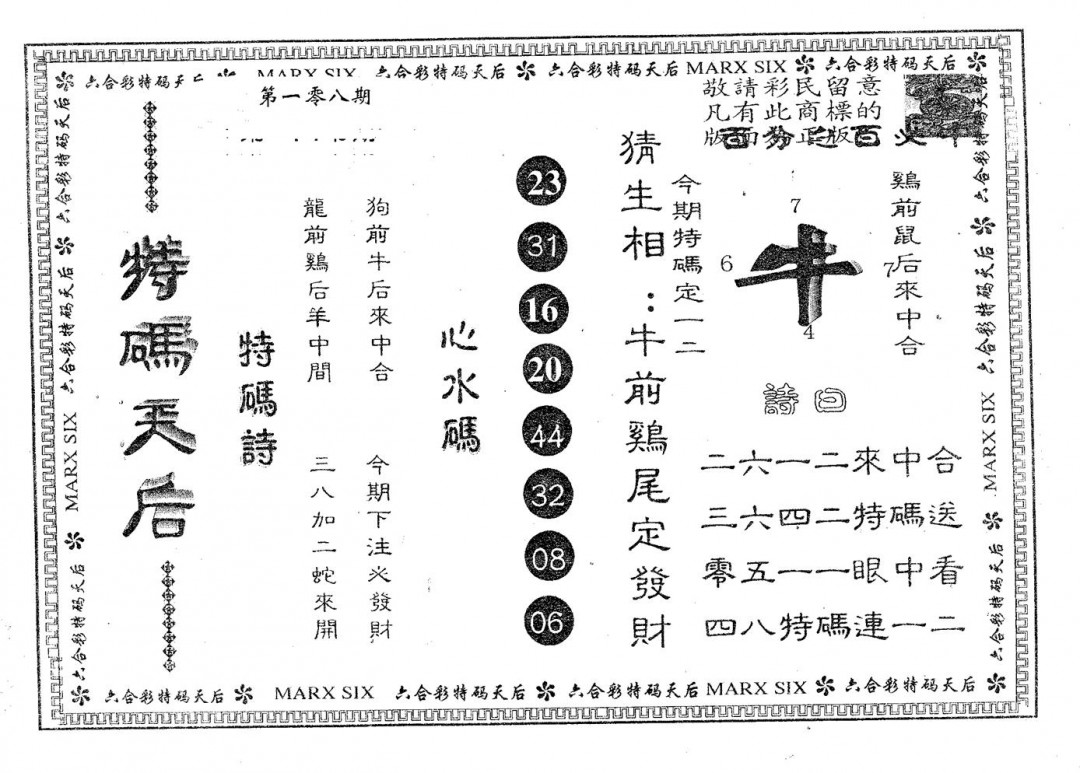 六合彩特码天后 MARX SIX 六合彩特码天后 六合彩特码天后 MARX SIX 六合彩特码天后
第一零八期
敬請彩民留意
凡有此商標的
版面为正版
百分之百必中
鷄前鼠后來中合
7
6
牛
7
4
今期特碼定一二
詩曰
二六一二來中合
三六四二特碼送
零五一一眼中看
四八特碼連一二
猜生相：牛前鷄尾定發財
23
31
16
20
44
32
08
06
心水碼
狗前牛后來中合
今期下注必發財
龍前鷄后羊中間
三八加二蛇來開
特碼詩
特碼天后
六合彩特码天后 六合彩特码天后 六合彩特码天后 MARX SIX 六合彩特码天后
六合彩特码天后 六合彩特码天后 MARX SIX 六合彩特码天后
六合彩特码天后 MARX SIX 六合彩特码天后 六合彩特码天后 MARX SIX 六合彩特码天后